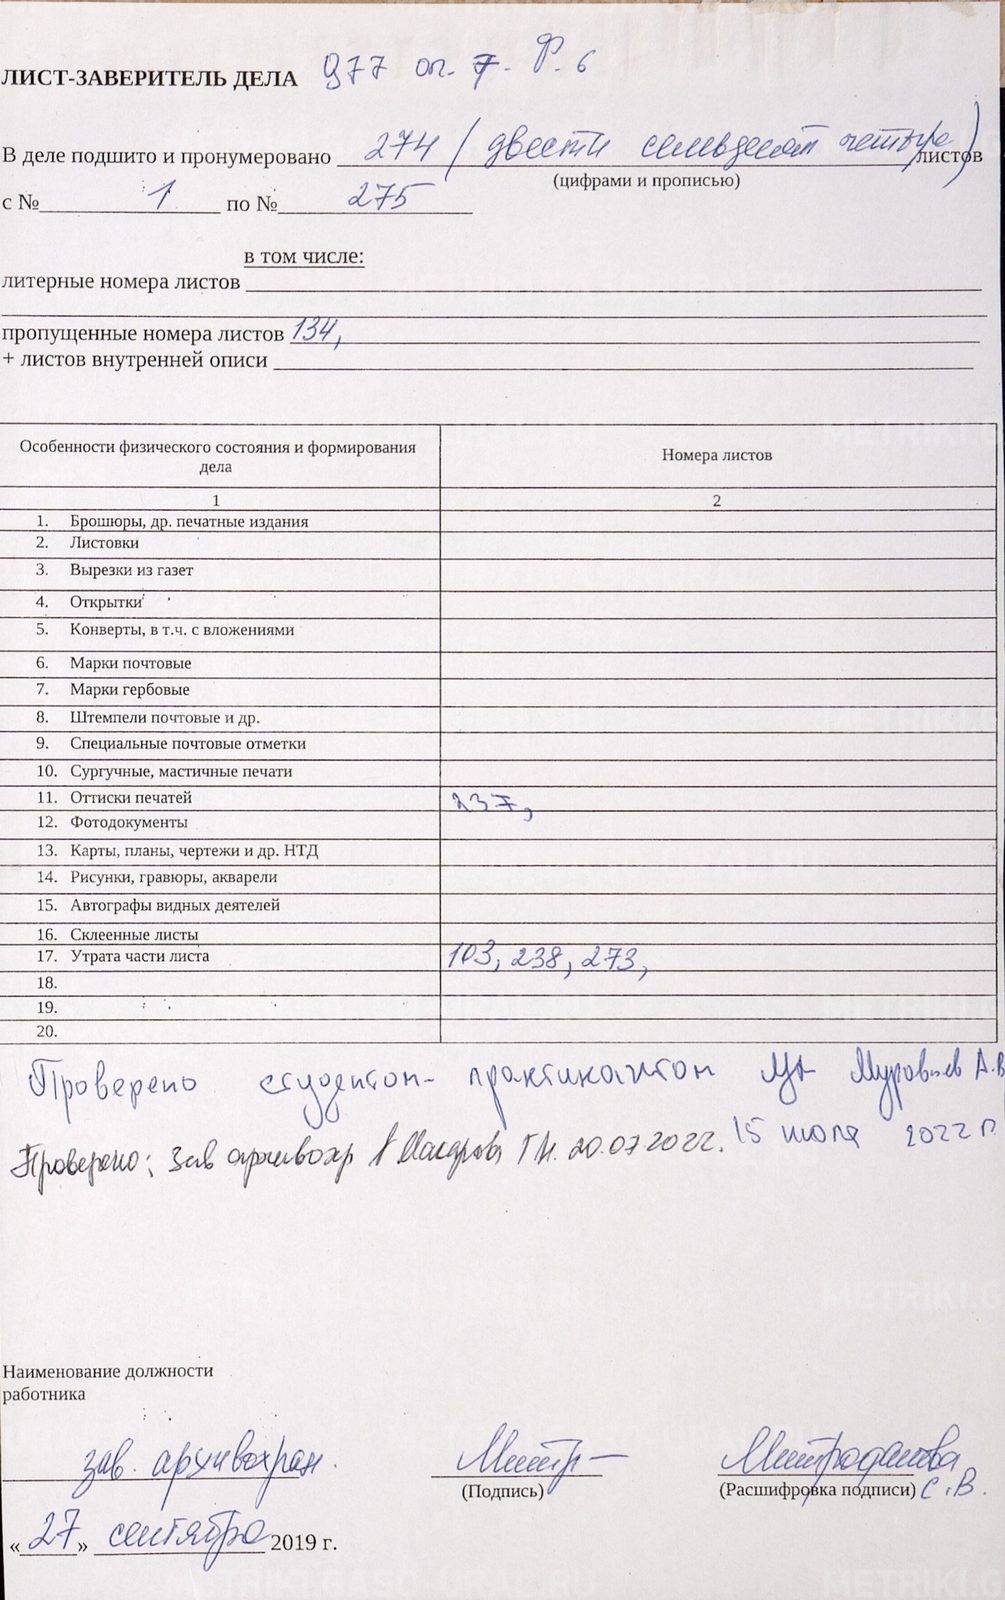 ЛИСТ-ЗАВЕРИТЕЛЬ ДЕЛА 977 оп. 7. Ф. 6
В деле подшито и пронумеровано 274 (двести семьдесят четыре) листов
(цифрами и прописью)
с № 1 по № 275
в том числе:
литерные номера листов
пропущенные номера листов 134,
+ листов внутренней описи
Особенности физического состояния и формирования дела Номера листов
1 2
1. Брошюры, др. печатные издания
2. Листовки
3. Вырезки из газет
4. Открытки
5. Конверты, в т.ч. с вложениями
6. Марки почтовые
7. Марки гербовые
8. Штемпели почтовые и др.
9. Специальные почтовые отметки
10. Сургучные, мастичные печати
11. Оттиски печатей 237,
12. Фотодокументы
13. Карты, планы, чертежи и др. НТД
14. Рисунки, гравюры, акварели
15. Автографы видных деятелей
16. Склеенные листы
17. Утрата части листа 103, 238, 273,
18.
19.
20.
Проверено студентом-практикантом Муравьев А.В
15 июля 2022 г
Проверено: Зав архивохр Макарова Г.Н. 20.07.2022.
Наименование должности
работника
зав. архивохран. Митр Митрофанова
(Подпись) (Расшифровка подписи) С.В.
«27» сентября 2019 г.
METRIKI.GASO-URAL.RU